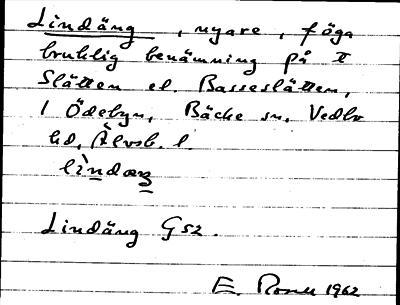 Lindäng, nyare, föga
bruklig benämning på t
Slätten el. Basseslätten,
1 Ödebyn, Bäcke sn, Vedbo
hd, Älvsb. l.
Lindäng G52.
E. Rosell 1962